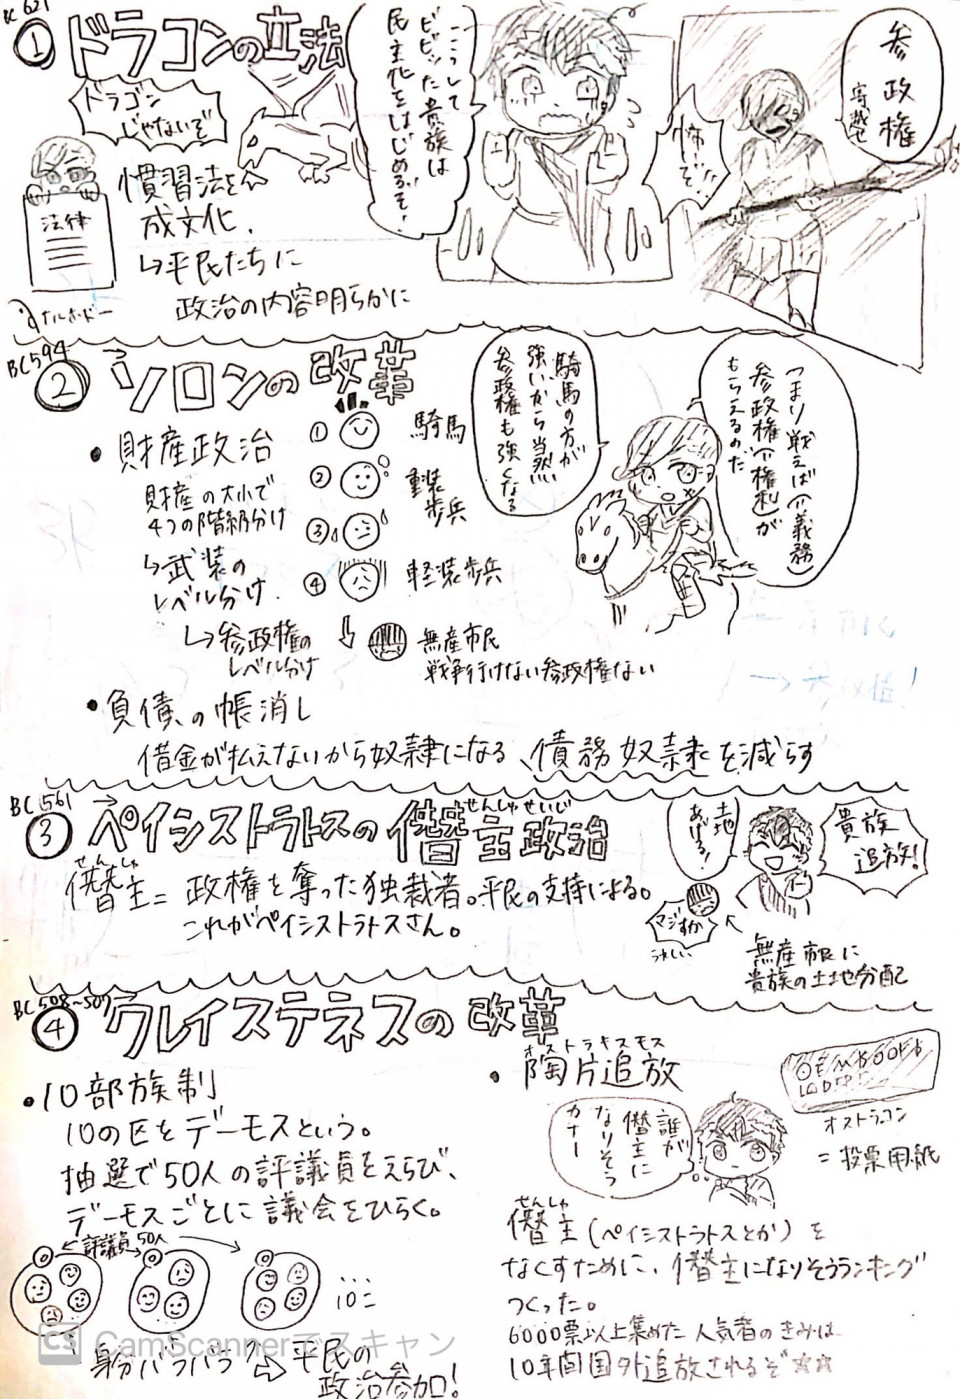 BC 621
① ドラコンの立法
ドラゴン
じゃないぞ
法律
ナルホドー
慣習法を
成文化、
↳平民たちに
政治の内容明らかに
こうして
ビビった貴族は
民主化をはじめるぞ!
怖ーぞ…
参政権
寄越せ
BC594
② ソロンの改革
・財産政治
財産の大小で
4つの階級分け
↳武装の
レベル分け
↳参政権の
レベル分け
① 騎馬
② 重装
歩兵
③
④ 軽装歩兵
無産市民
戦争行けない参政権ない
騎馬の方が
強いから当然
参政権も強くなる
つまり戦えば(義務)
参政権(権利)が
もらえるのだ
・負債の帳消し
借金が払えないから奴隷になる、債務奴隷を減らす
BC561
③ ペイシストラトスの僭主政治
せんしゅせいじ
せんしゅ
僭主=政権を奪った独裁者。平民の支持による。
これがペイシストラトスさん。
土地
あげる!
貴族
追放!
マジすか
うれしい
無産市民に
貴族の土地分配
BC508~507
④ クレイステネスの改革
・10部族制
10の区をデーモスという。
抽選で50人の評議員をえらび、
デーモスごとに議会をひらく。
評議員50人
...
10こ
身分バラバラ
⇨平民の
政治参加!
オストラキスモス
・陶片追放
誰が
僭主に
なりそう
カナー
オストラコン
=投票用紙
せんしゅ
僭主(ペイシストラトスとか)を
なくすために、僭主になりそうランキング
つくった。
6000票以上集めた人気者のきみは
10年間国外追放されるぞ☆☆
CS CamScannerでスキャン